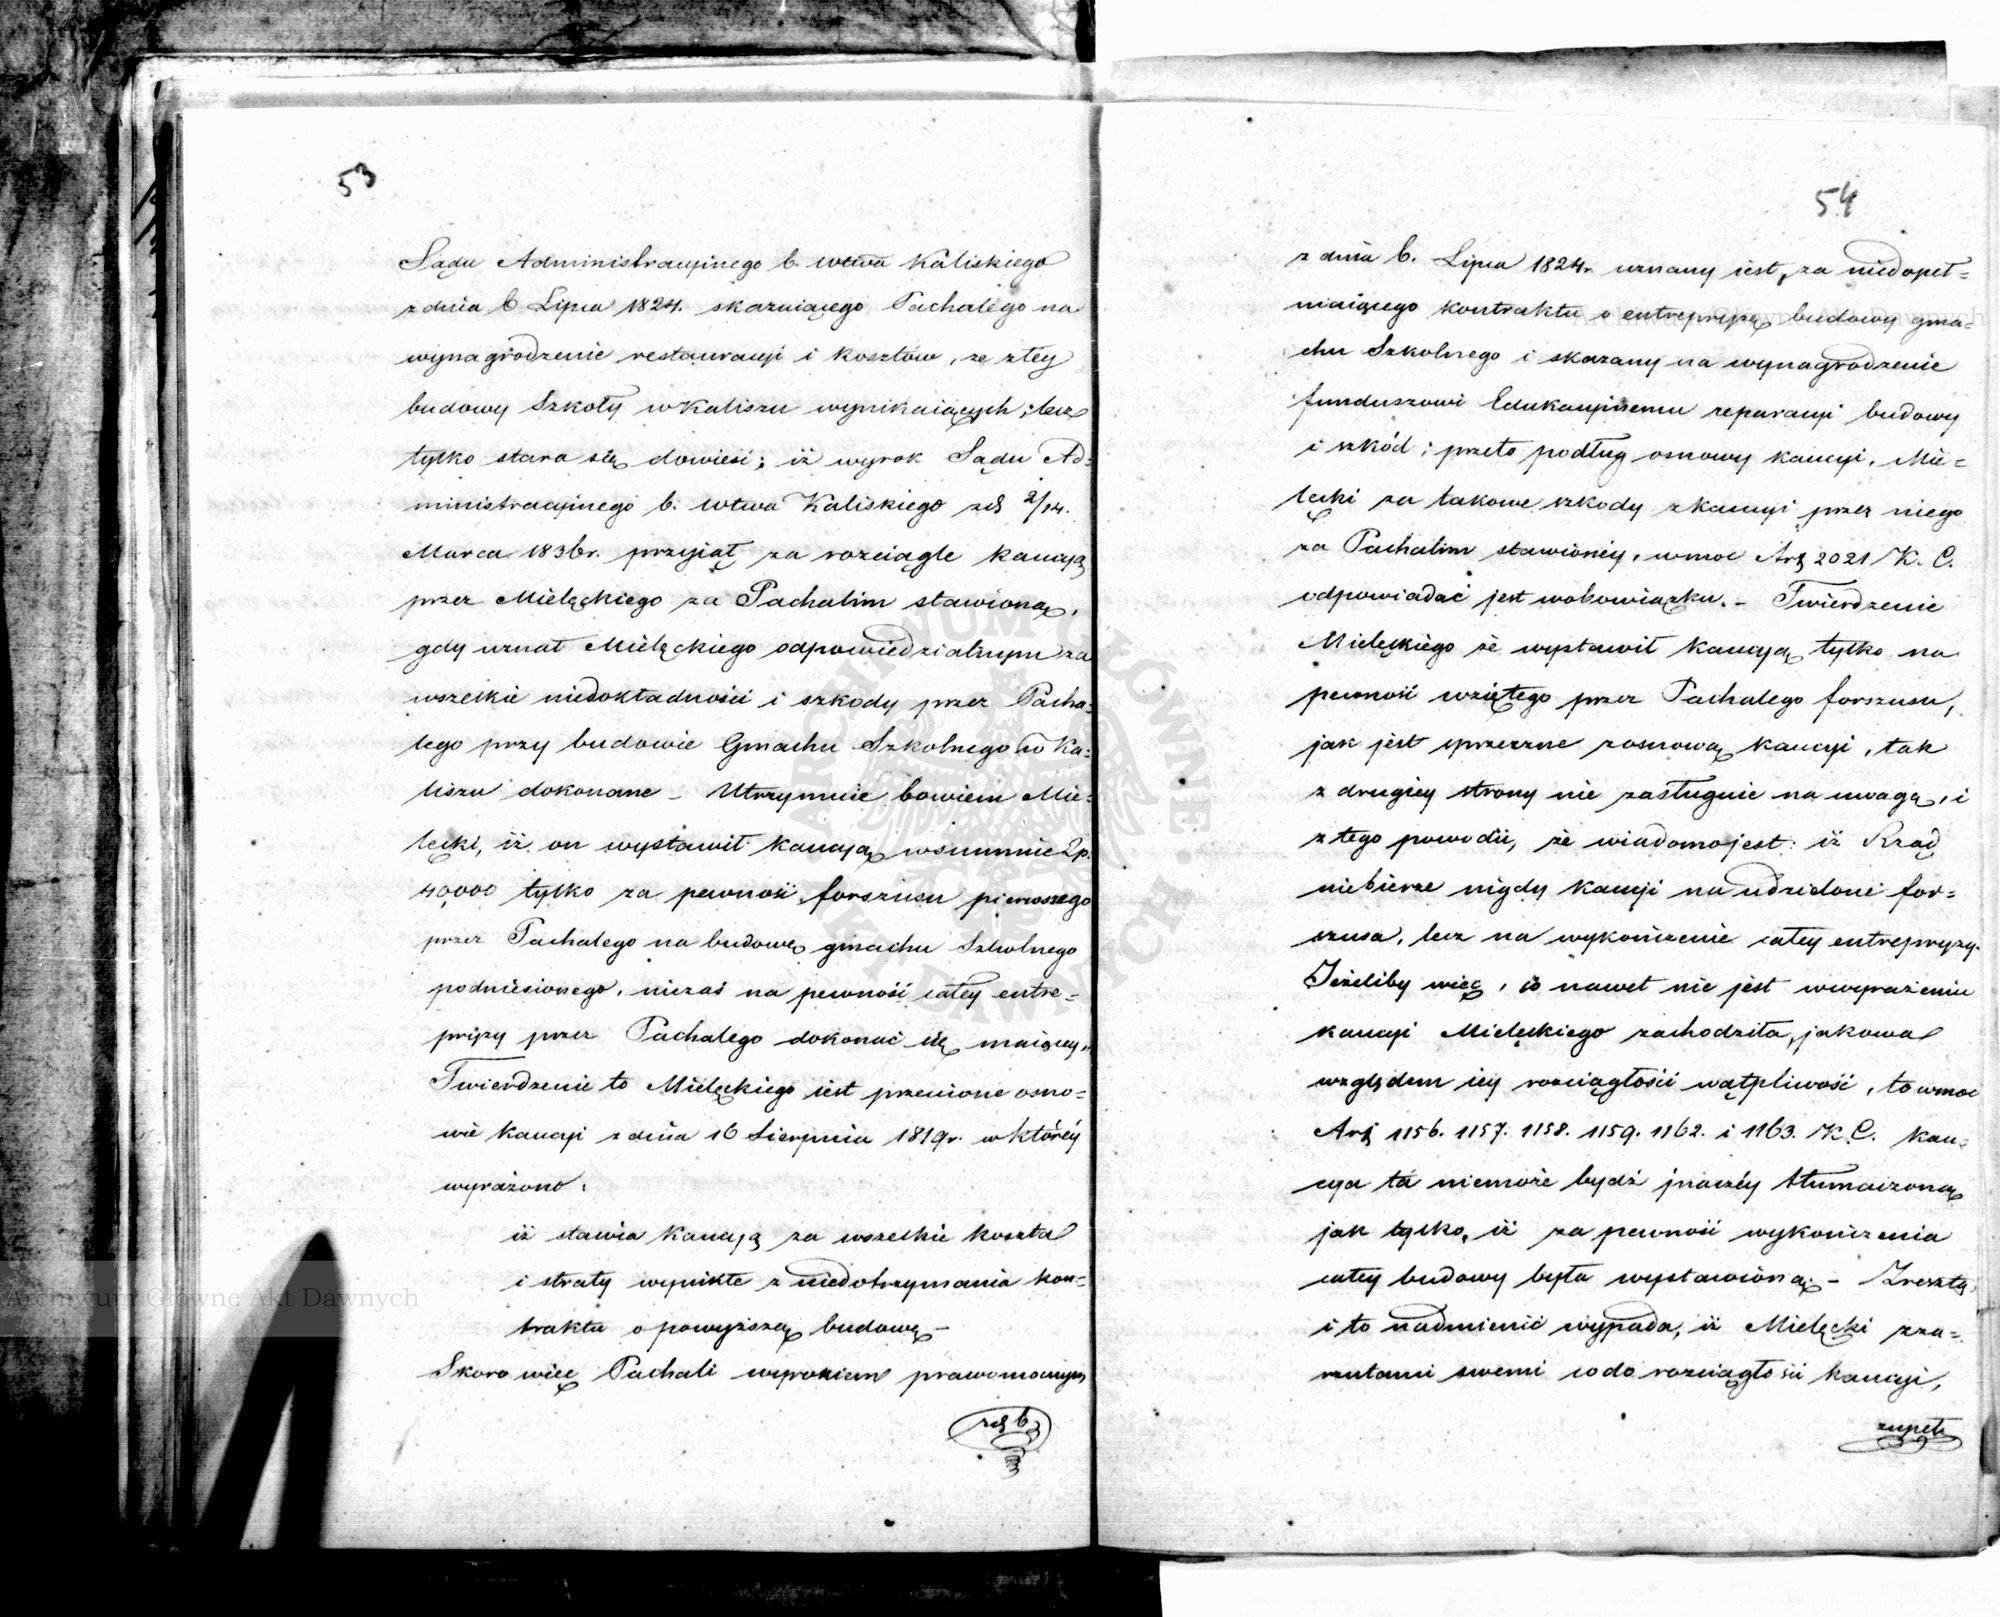 53
Sądu Administracyinego b. wtwa Kaliskiego
z dnia 6 Lipca 1824. skazuiącego Pachalego na
wynagrodzenie restauracyi i kosztów, ze złey
budowy Szkoły w Kaliszu wynikaiących; lecz
tylko stara się dowieść; iż wyrok Sądu Ad=
ministracyinego b. wtwa Kaliskiego zd 2/14.
Marca 1836r. przyjął za rozciągle kaucyą
przez Mielęckiego za Pachalim stawioną,
gdy uznał Mielęckiego odpowiedzialnym za
wszelkie niedokładności i szkody przez Pacha=
lego przy budowie Gmachu Szkolnego w Ka=
liszu dokonane – Utrzymuie bowiem Mie=
lęcki, iż on wystawił kaucyą w summie Zp.
40,000 tylko za pewność forszusu pierwszego
przez Pachalego na budowę gmachu Szkolnego
podniesionego, niezaś na pewność całey entre=
pryzy przez Pachalego dokonać się maiącey.
Twierdzenie to Mielęckiego iest przeciwne osno=
wie kaucyi z dnia 16 Sierpnia 1819r. w którey
wyrażono:
iż stawia kaucyą za wszelkie koszta
i straty wynikłe z niedotrzymania kon=
traktu o powyższą budowę –
Skoro więc Pachali wyrokiem prawomocnym
zd 6
54
z dnia 6. Lipca 1824r. uznany iest, za niedopeł=
niaiącego kontraktu o entrepryzę budowy gma=
chu Szkolnego i skazany na wynagrodzenie
funduszowi Edukacyinemu reparacyi budowy
i szkód; przeto podług osnowy kaucyi, Mie=
lęcki za takowe szkody z kaucyi przez niego
za Pachalim stawioney, w moc Art 2021 K. C.
odpowiadać jest w obowiązku. – Twierdzenie
Mielęckiego że wystawił kaucyą tylko na
pewność wziętego przez Pachalego forszusu,
jak jest sprzeczne z osnową kaucyi, tak
z drugiey strony nie zasługuie na uwagę, i
z tego powodu, że wiadomo jest: iż Rząd
niebierze nigdy kaucyi na udzielone for=
szusa, lecz na wykończenie całey entrepryzy.
Jeżeliby więc, co nawet nie jest w wyrażeniu
kaucyi Mielęckiego zachodziła, jakowa
względem iey rozciągłości wątpliwość, to w moc
Art 1156. 1157. 1158. 1159. 1162. i 1163. K. C. kau=
cya ta niemoże bydź inaczéy tłumaczoną
jak tylko, iż za pewność wykończenia
całey budowy była wystawioną. – Zresztą,
i to nadmienić wypada, iż Mielęcki z za=
rzutami swemi co do rozciągłości kaucyi,
zupeł
ARCHIWUM GŁÓWNE AKT DAWNYCH
Archiwum Główne Akt Dawnych
Archiwum Główne Akt Dawnych